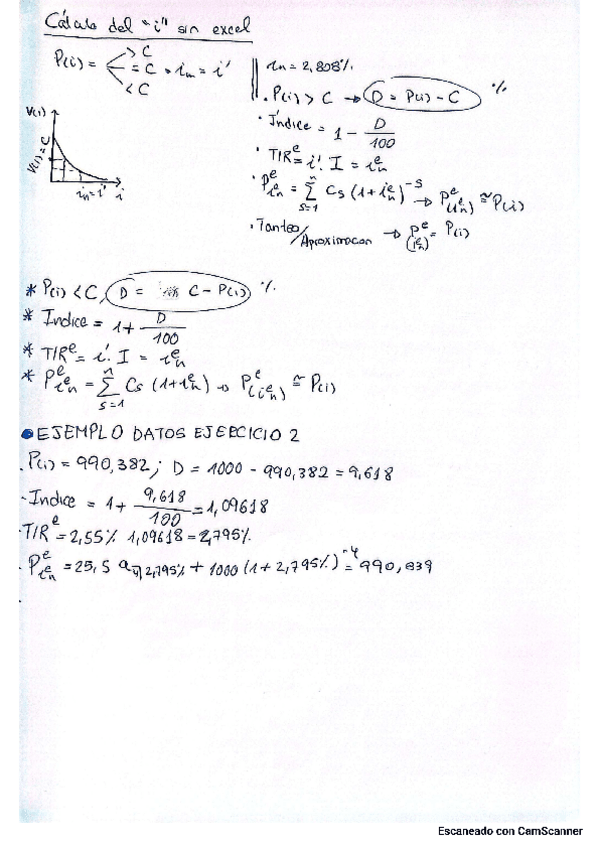 Cálculo del "i" sin excel
P(i) = > C
= C → in = i'
< C
in = 2,808%
. P(i) > C → D = P(i) - C %
· Índice = 1 - D/100
· TIRe = i'. I = ien
· Peien = Σ n s=1 Cs (1+ien)-s → Pe(ien) ≅ P(i)
· Tanteo/Aproximacon → Pe(ien) = P(i)
V(i)
V(i) = C
in = i' i
* P(i) < C, D = C - P(i) %
* Índice = 1 + D/100
* TIRe = i'. I = ien
* Peien = Σ n s=1 Cs (1+ien) → Pe(ien) ≅ P(i)
● EJEMPLO DATOS EJERCICIO 2
. P(i) = 990,382; D = 1000 - 990,382 = 9,618
· Indice = 1 + 9,618/100 = 1,09618
· TIRe = 2,55% 1,09618 = 2,795%
· Peien = 25,5 a4┐2,795% + 1000 (1 + 2,795%)-4 = 990,839
Escaneado con CamScanner